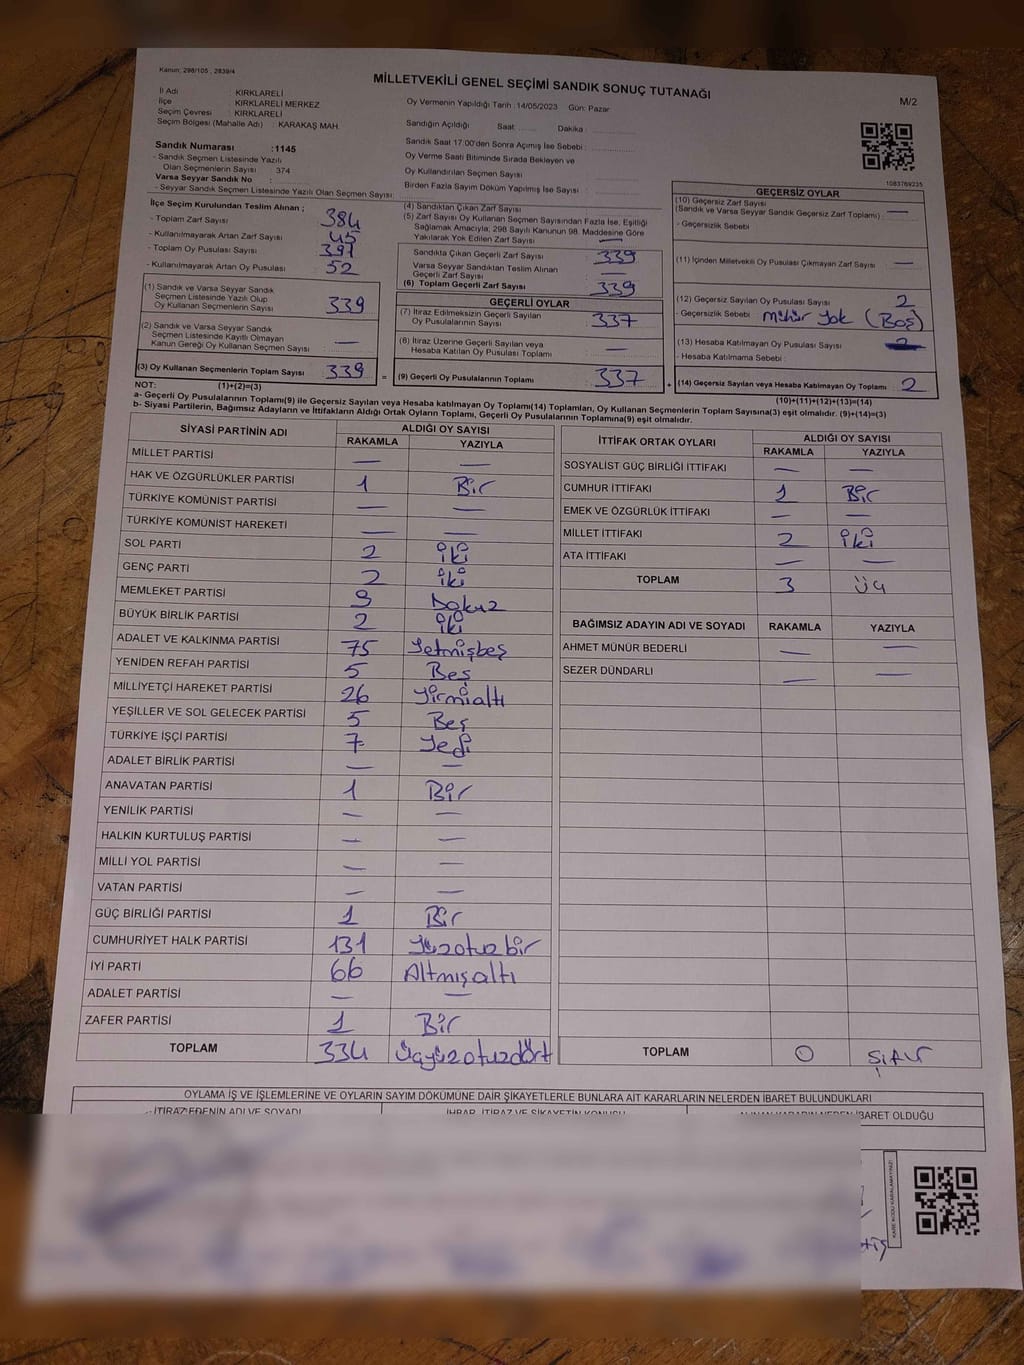 Kanun: 298/105 , 2839/4
MİLLETVEKİLİ GENEL SEÇİMİ SANDIK SONUÇ TUTANAĞI
M/2
İl Adı : KIRKLARELİ
İlçe : KIRKLARELİ MERKEZ
Seçim Çevresi : KIRKLARELİ
Seçim Bölgesi (Mahalle Adı) : KARAKAŞ MAH.
Oy Vermenin Yapıldığı Tarih :14/05/2023 Gün: Pazar
Sandığın Açıldığı Saat ...... Dakika :
Sandık Saat 17:00'den Sonra Açımış İse Sebebi :
Oy Verme Saati Bitiminde Sırada Bekleyen ve
Oy Kullandırılan Seçmen Sayısı
Birden Fazla Sayım Döküm Yapılmış İse Sayısı :
Sandık Numarası :1145
- Sandık Seçmen Listesinde Yazılı
Olan Seçmenlerin Sayısı : 374
Varsa Seyyar Sandık No :
- Seyyar Sandık Seçmen Listesinde Yazılı Olan Seçmen Sayısı:
1083769235
İlçe Seçim Kurulundan Teslim Alınan ;
- Toplam Zarf Sayısı 384
- Kullanılmayarak Artan Zarf Sayısı : 45
- Toplam Oy Pusulası Sayısı 391
- Kullanılmayarak Artan Oy Pusulası : 52
(1) Sandık ve Varsa Seyyar Sandık
Seçmen Listesinde Yazılı Olup
Oy Kullanan Seçmenlerin Sayısı : 339
(2) Sandık ve Varsa Seyyar Sandık
Seçmen Listesinde Kayıtlı Olmayan
Kanun Gereği Oy Kullanan Seçmen Sayısı : —
(3) Oy Kullanan Seçmenlerin Toplam Sayısı : 339
=
(4) Sandıktan Çıkan Zarf Sayısı
(5) Zarf Sayısı Oy Kullanan Seçmen Sayısından Fazla İse, Eşitliği
Sağlamak Amacıyla, 298 Sayılı Kanunun 98. Maddesine Göre
Yakılarak Yok Edilen Zarf Sayısı : —
Sandıkta Çıkan Geçerli Zarf Sayısı : 339
Varsa Seyyar Sandıktan Teslim Alınan
Geçerli Zarf Sayısı : —
(6) Toplam Geçerli Zarf Sayısı : 339
GEÇERLİ OYLAR
(7) İtiraz Edilmeksizin Geçerli Sayılan
Oy Pusulalarının Sayısı : 337
(8) İtiraz Üzerine Geçerli Sayılan veya
Hesaba Katılan Oy Pusulası Toplamı : —
(9) Geçerli Oy Pusulalarının Toplamı : 337
+
GEÇERSİZ OYLAR
(10) Geçersiz Zarf Sayısı
(Sandık ve Varsa Seyyar Sandık Geçersiz Zarf Toplamı) : —
- Geçersizlik Sebebi
(11) İçinden Milletvekili Oy Pusulası Çıkmayan Zarf Sayısı : —
(12) Geçersiz Sayılan Oy Pusulası Sayısı : 2
- Geçersizlik Sebebi : Mühür Yok (Boş)
(13) Hesaba Katılmayan Oy Pusulası Sayısı :
- Hesaba Katılmama Sebebi :
(14) Geçersiz Sayılan veya Hesaba Katılmayan Oy Toplamı : 2
NOT: (1)+(2)=(3)
(10)+(11)+(12)+(13)=(14)
a- Geçerli Oy Pusulalarının Toplamı(9) ile Geçersiz Sayılan veya Hesaba katılmayan Oy Toplamı(14) Toplamları, Oy Kullanan Seçmenlerin Toplam Sayısına(3) eşit olmalıdır. (9)+(14)=(3)
b- Siyasi Partilerin, Bağımsız Adayların ve İttifakların Aldığı Ortak Oyların Toplamı, Geçerli Oy Pusulalarının Toplamına(9) eşit olmalıdır.
SİYASİ PARTİNİN ADI ALDIĞI OY SAYISI
RAKAMLA YAZIYLA
MİLLET PARTİSİ — —
HAK VE ÖZGÜRLÜKLER PARTİSİ 1 Bir
TÜRKİYE KOMÜNİST PARTİSİ — —
TÜRKİYE KOMÜNİST HAREKETİ — —
SOL PARTİ 2 iki
GENÇ PARTİ 2 iki
MEMLEKET PARTİSİ 9 Dokuz
BÜYÜK BİRLİK PARTİSİ 2 iki
ADALET VE KALKINMA PARTİSİ 75 Yetmişbeş
YENİDEN REFAH PARTİSİ 5 Beş
MİLLİYETÇİ HAREKET PARTİSİ 26 Yirmialtı
YEŞİLLER VE SOL GELECEK PARTİSİ 5 Beş
TÜRKİYE İŞÇİ PARTİSİ 7 Yedi
ADALET BİRLİK PARTİSİ — —
ANAVATAN PARTİSİ 1 Bir
YENİLİK PARTİSİ — —
HALKIN KURTULUŞ PARTİSİ — —
MİLLİ YOL PARTİSİ — —
VATAN PARTİSİ — —
GÜÇ BİRLİĞİ PARTİSİ 1 Bir
CUMHURİYET HALK PARTİSİ 131 Yüzotuzbir
İYİ PARTİ 66 Altmışaltı
ADALET PARTİSİ — —
ZAFER PARTİSİ 1 Bir
TOPLAM 334 Üçyüzotuzdört
İTTİFAK ORTAK OYLARI ALDIĞI OY SAYISI
RAKAMLA YAZIYLA
SOSYALİST GÜÇ BİRLİĞİ İTTİFAKI — —
CUMHUR İTTİFAKI 1 Bir
EMEK VE ÖZGÜRLÜK İTTİFAKI — —
MİLLET İTTİFAKI 2 iki
ATA İTTİFAKI — —
TOPLAM 3 üç
BAĞIMSIZ ADAYIN ADI VE SOYADI RAKAMLA YAZIYLA
AHMET MÜNÜR BEDERLİ — —
SEZER DÜNDARLI — —
TOPLAM 0 Sıfır
OYLAMA İŞ VE İŞLEMLERİNE VE OYLARIN SAYIM DÖKÜMÜNE DAİR ŞİKAYETLERLE BUNLARA AİT KARARLARIN NELERDEN İBARET BULUNDUKLARI
İTİRAZ EDENİN ADI VE SOYADI İHBAR, İTİRAZ VE ŞİKAYETİN KONUSU ALINAN KARARIN NEDEN İBARET OLDUĞU
KARE KODU KARALAMAYINIZ!